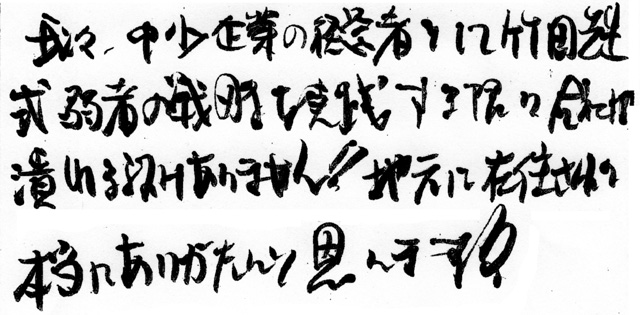 我々、中小企業の経営者として竹田先生
式弱者の戦略を実践する限り会社は
潰れる訳ありません!! 地元に在住され
本当にありがたいと思います!!